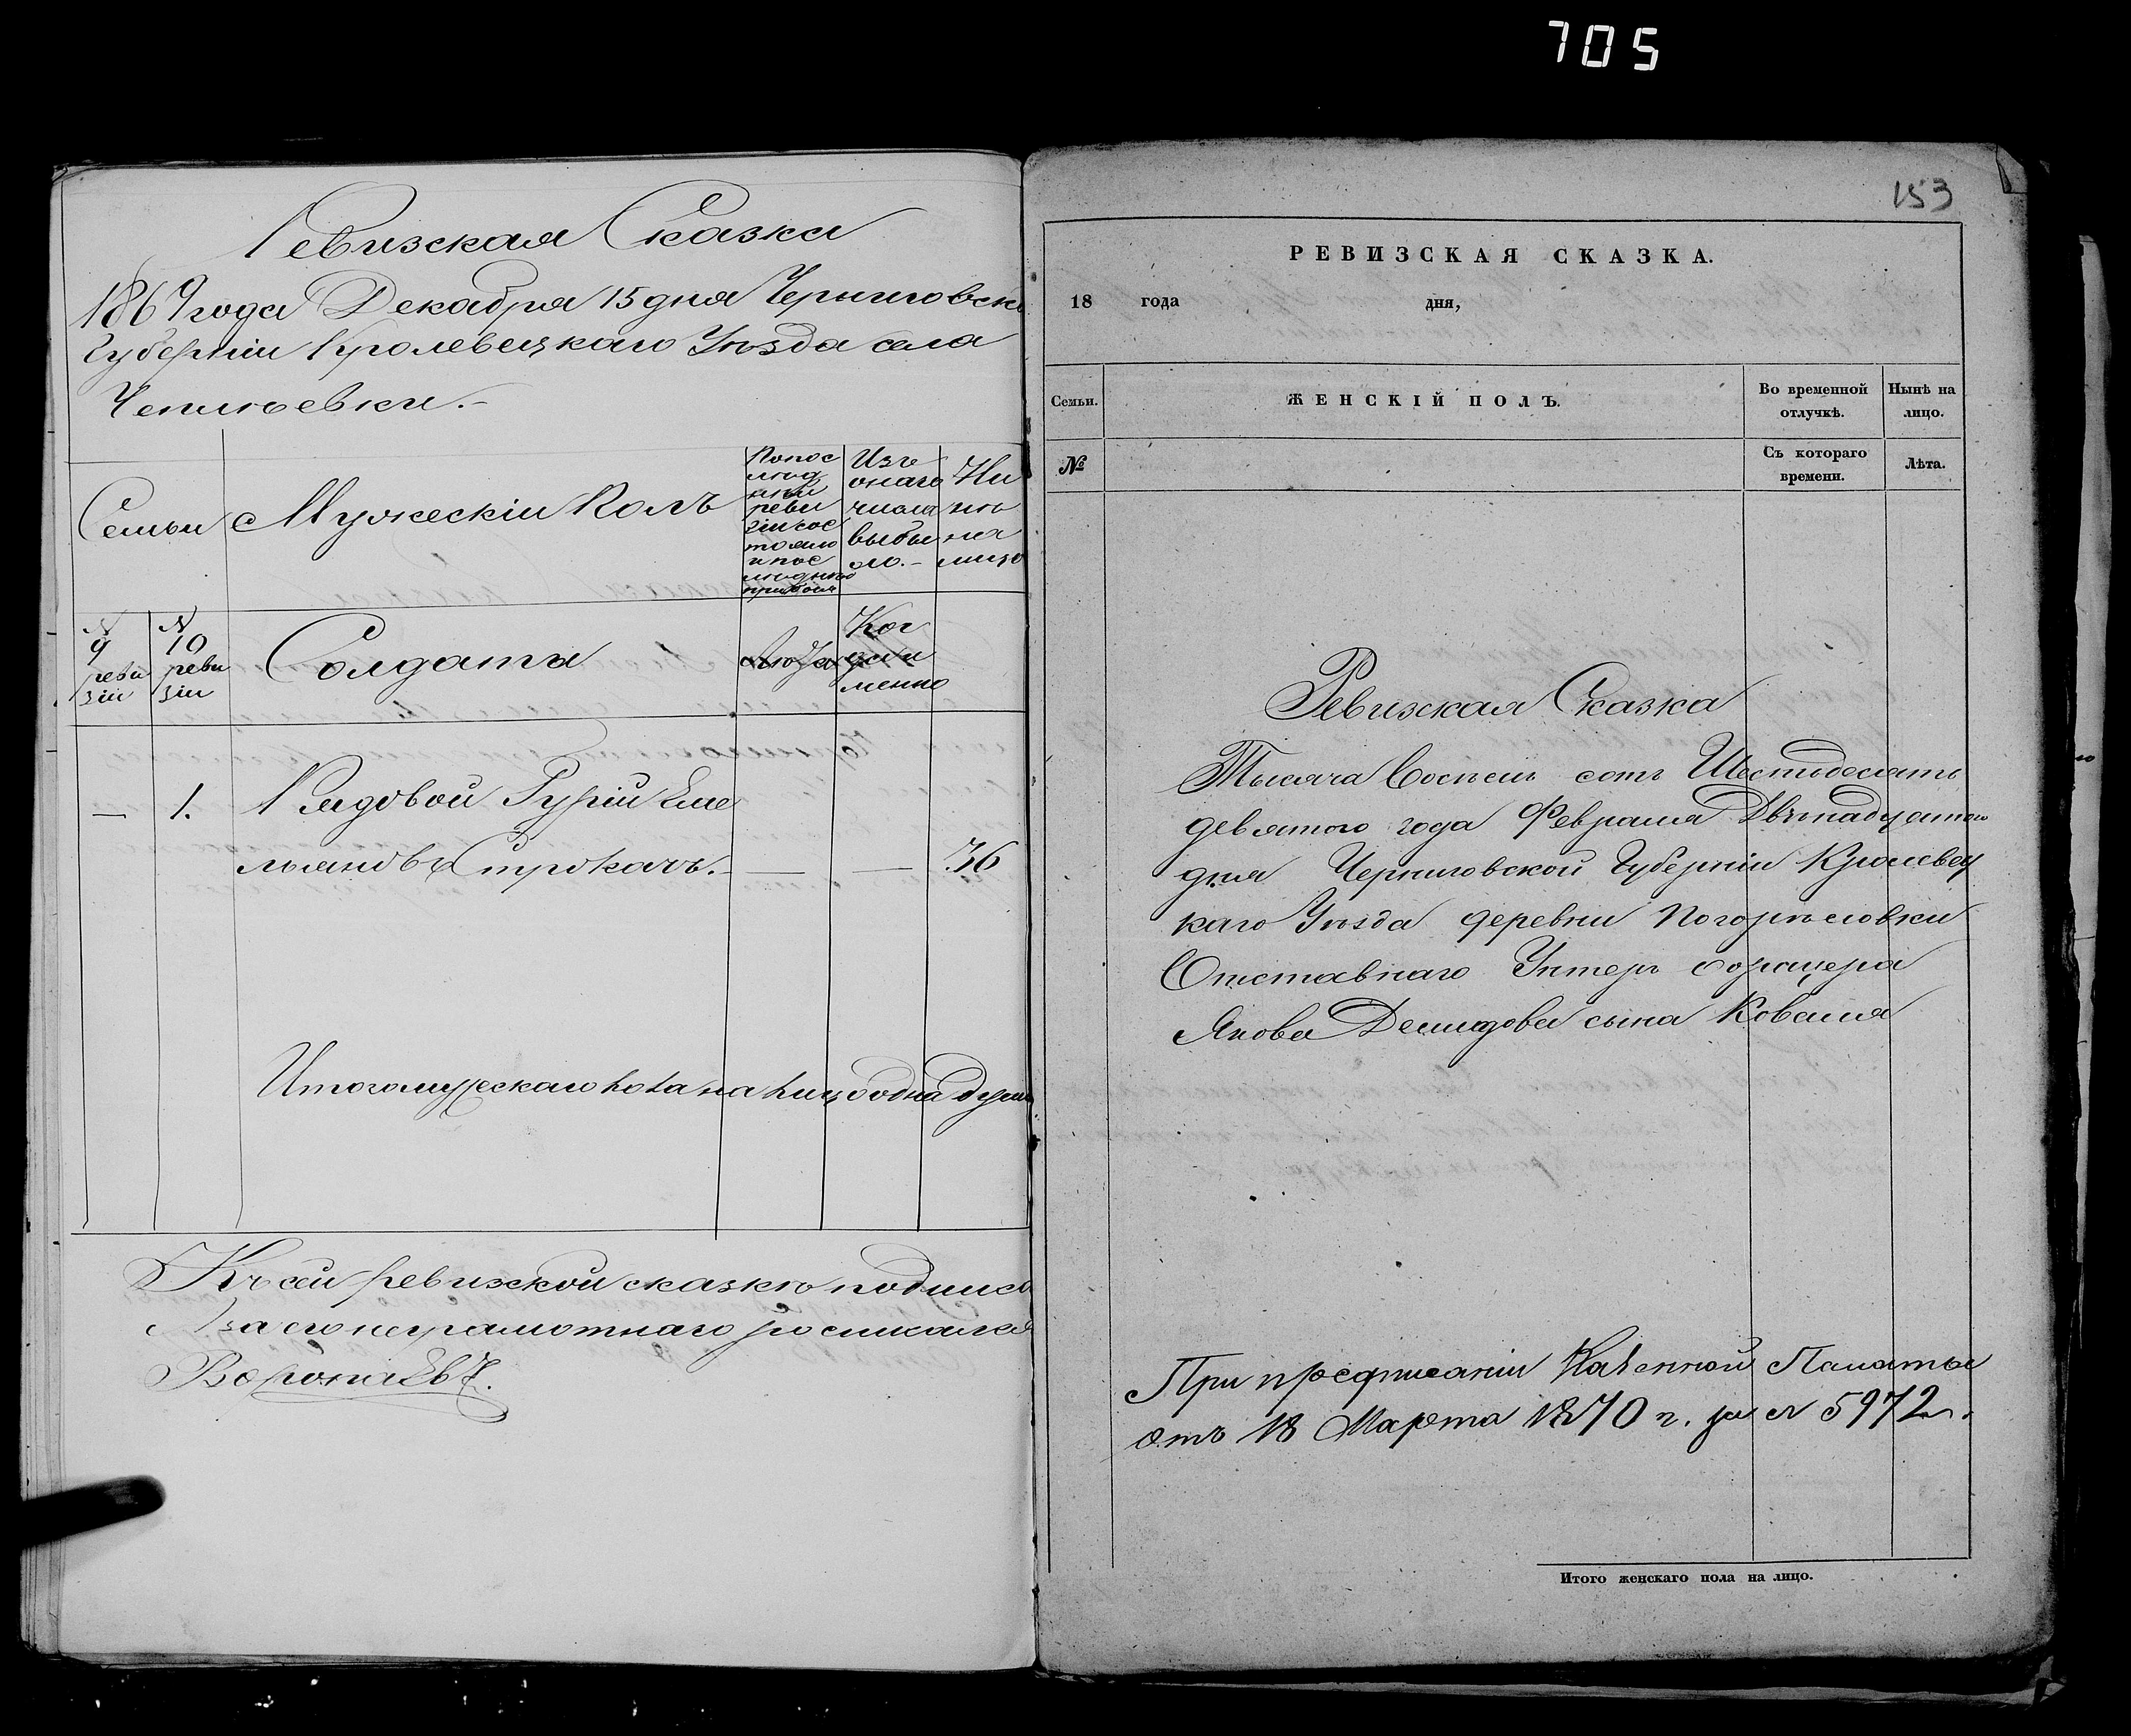 705
Ревизская Сказка
1869 года Декабря 15 дня Черниговск
Губерніи Кролевецкаго Уѣзда села
Чепліевки.-
Семьи
Мужескій Полъ
По пос
лѣд
ней
реви
зіи сос
тояло
и пос
лѣ
прибыл
Изъ
онаго
числа
выбы
ло.-
Ны
нѣ
на
лицо
№
9
реви
зіи
№
10
реви
зіи
Солдата
Лѣта
Ког
да и
менно
— 1. Рядовой Гурій Еме
льяновъ Строкачъ. — — 36
Итого мужескаго пола на лицо одна душа
Къ сей ревизской сказкѣ подпис
за его неграмотнаго росписался
153
РЕВИЗСКАЯ СКАЗКА.
18 года дня,
Семьи.
ЖЕНСКІЙ ПОЛЪ.
Во временной
отлучкѣ.
Нынѣ на
лицо.
№
Съ котораго
времени.
Лѣта.
Ревизская Сказка
Тысяча Восемь сотъ Шестьдесятъ
девятого года Февраля Двѣнадцатого
дня Черниговской Губерніи Кролевец
каго Уѣзда деревни Погорѣловки
Отставнаго Унтеръ офицера
Якова Демидова сына Коваля
При предписаніи Казенной Палаты
отъ 18 Марта 1870 г. за № 5972.
Итого женскаго пола на лицо.